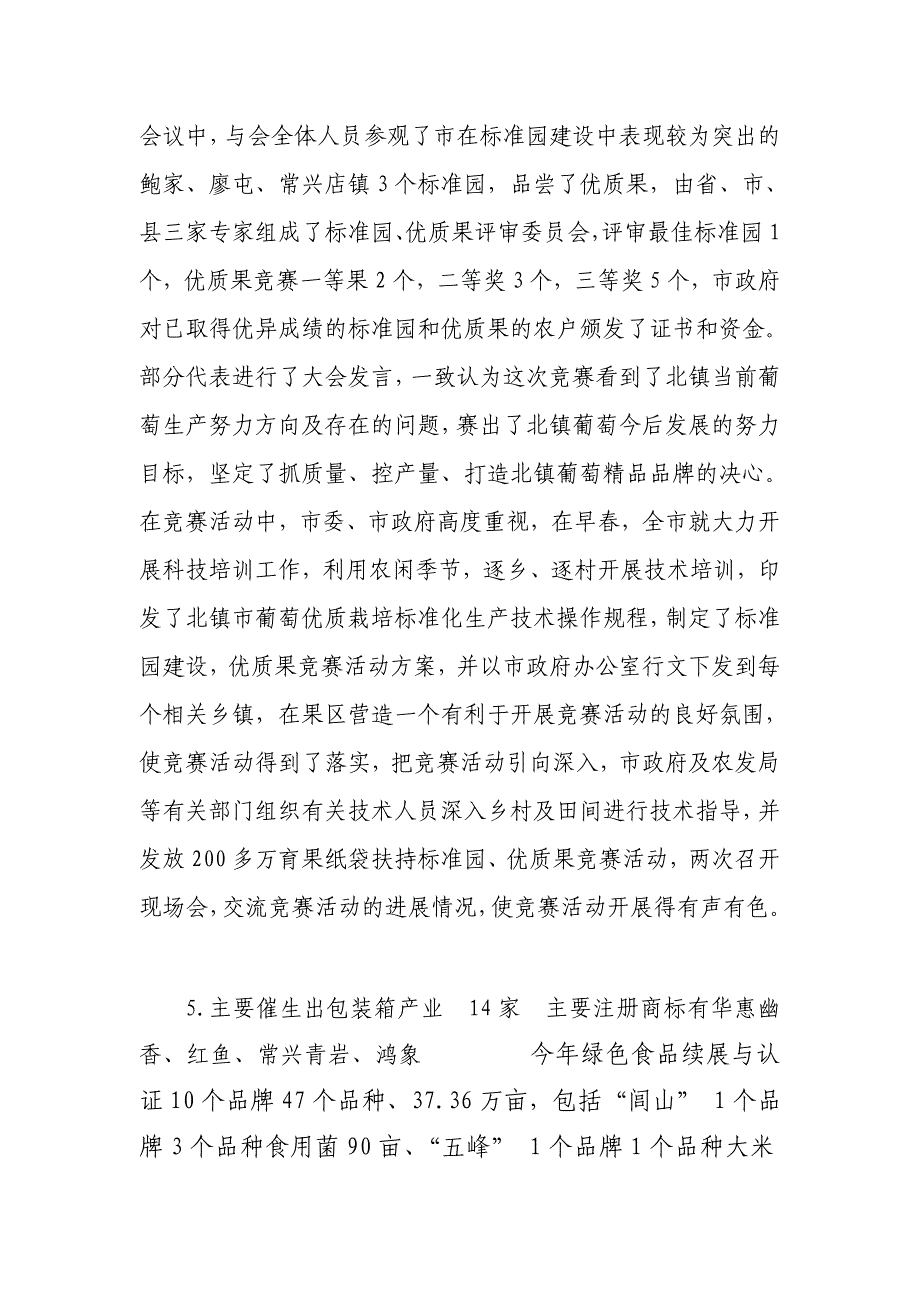 会议中，与会全体人员参观了市在标准园建设中表现较为突出的
鲍家、廖屯、常兴店镇 3 个标准园，品尝了优质果，由省、市、
县三家专家组成了标准园、优质果评审委员会，评审最佳标准园 1
个，优质果竞赛一等果 2 个，二等奖 3 个，三等奖 5 个，市政府
对已取得优异成绩的标准园和优质果的农户颁发了证书和资金。
部分代表进行了大会发言，一致认为这次竞赛看到了北镇当前葡
萄生产努力方向及存在的问题，赛出了北镇葡萄今后发展的努力
目标，坚定了抓质量、控产量、打造北镇葡萄精品品牌的决心。
在竞赛活动中，市委、市政府高度重视，在早春，全市就大力开
展科技培训工作，利用农闲季节，逐乡、逐村开展技术培训，印
发了北镇市葡萄优质栽培标准化生产技术操作规程，制定了标准
园建设，优质果竞赛活动方案，并以市政府办公室行文下发到每
个相关乡镇，在果区营造一个有利于开展竞赛活动的良好氛围，
使竞赛活动得到了落实，把竞赛活动引向深入，市政府及农发局
等有关部门组织有关技术人员深入乡村及田间进行技术指导，并
发放 200 多万育果纸袋扶持标准园、优质果竞赛活动，两次召开
现场会，交流竞赛活动的进展情况，使竞赛活动开展得有声有色。
5.主要催生出包装箱产业 14 家 主要注册商标有华惠幽
香、红鱼、常兴青岩、鸿象 今年绿色食品续展与认
证 10 个品牌 47 个品种、37.36 万亩，包括“闾山” 1 个品
牌 3 个品种食用菌 90 亩、“五峰” 1 个品牌 1 个品种大米